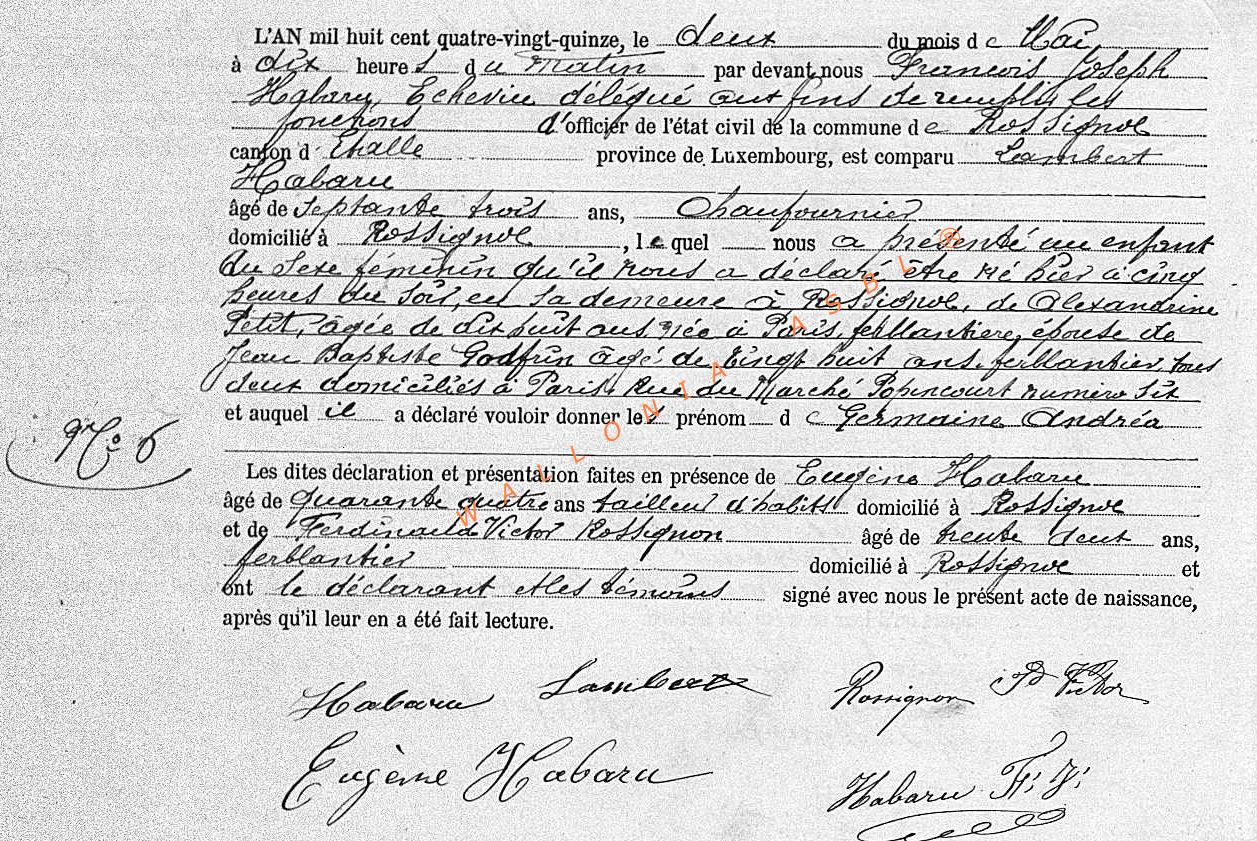 L'AN mil huit cent quatre-vingt-quinze, le deux du mois de Mai
à dix heures du matin par devant nous François Joseph
Habaru, Echevin délégué aux fins de remplir les
fonctions d'officier de l'état civil de la commune de Rossignol
canton d'Etalle province de Luxembourg, est comparu Lambert
Habaru
âgé de septante trois ans, Chaufournier
domicilié à Rossignol, lequel nous a présenté un enfant
du sexe féminin qu'il nous a déclaré être né hier à cinq
heures du soir, en sa demeure à Rossignol, de Alexandrine
Petit, âgée de dix huit ans, née à Paris, ferblantière, épouse de
Jean Baptiste Godfrin âgé de vingt huit ans, ferblantier, tous
deux domiciliés à Paris, Rue du Marché Popincourt numéro six
et auquel il a déclaré vouloir donner les prénom de Germaine Andréa
N° 6
Les dites déclaration et présentation faites en présence de Eugène Habaru
âgé de quarante quatre ans tailleur d'habits domicilié à Rossignol
et de Ferdinand Victor Rossignon âgé de trente deux ans,
ferblantier domicilié à Rossignol et
ont le déclarant et les témoins signé avec nous le présent acte de naissance,
après qu'il leur en a été fait lecture.
Habaru Lambert Rossignon Fd Victor
Eugène Habaru Habaru F. J.
WALLONIA ASBL ®